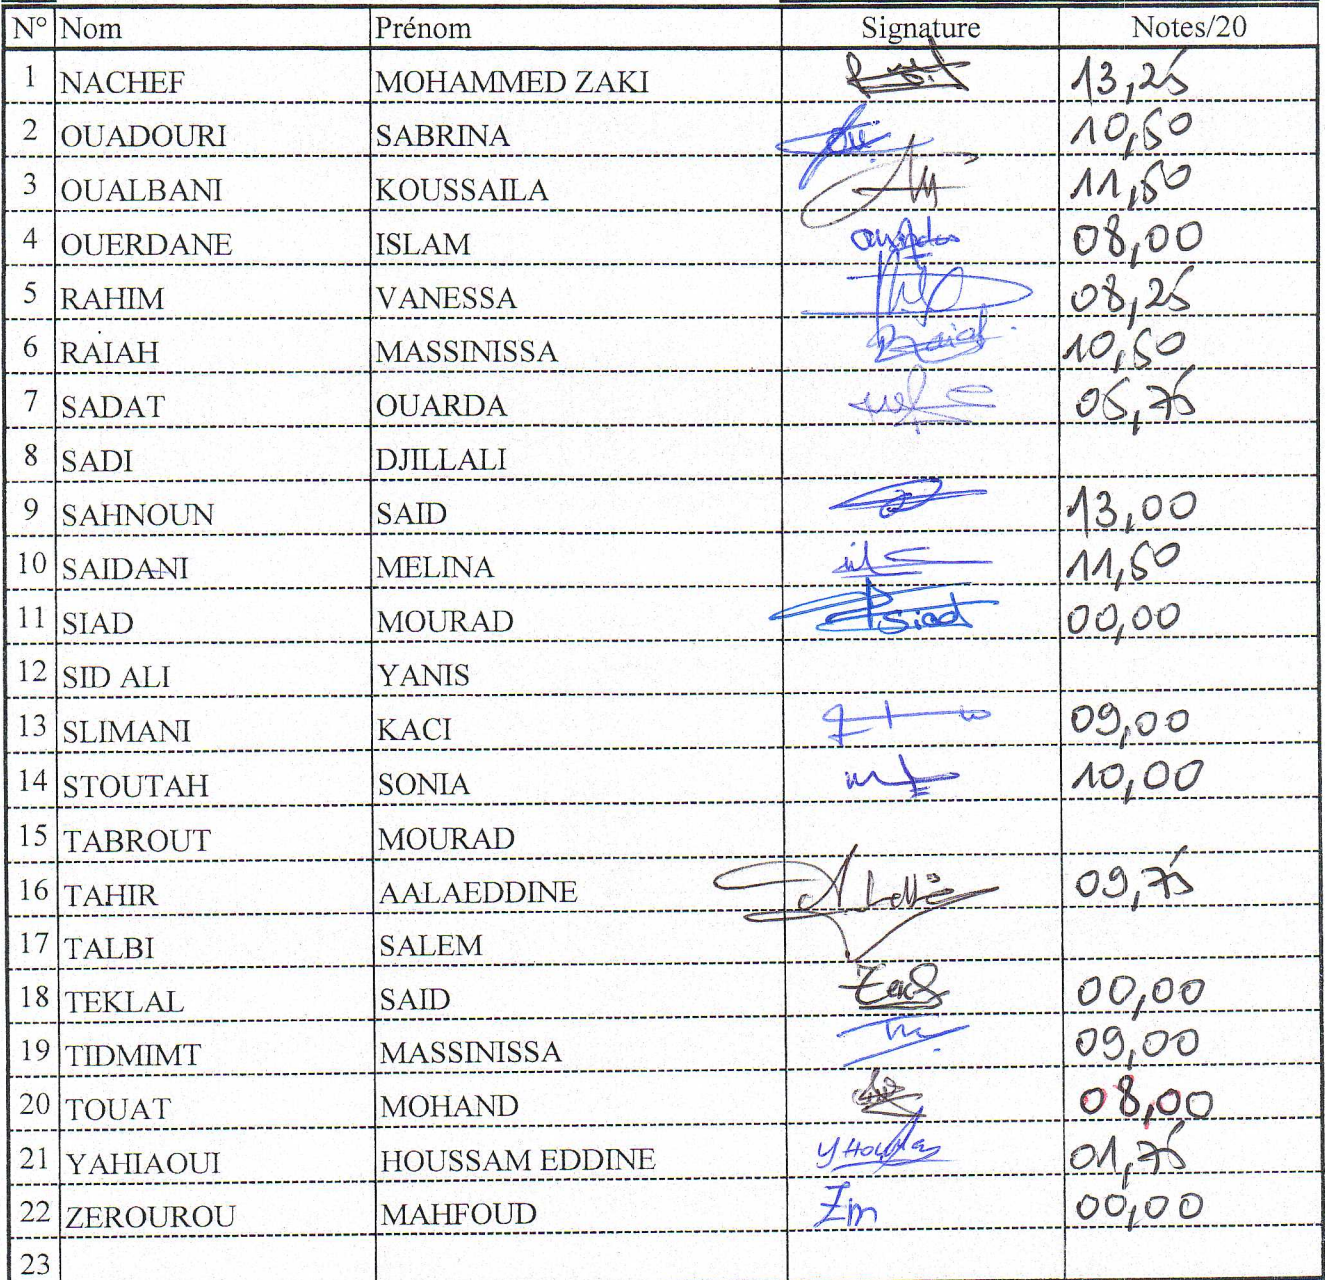 N° Nom Prénom Signature Notes/20
1 NACHEF MOHAMMED ZAKI 13,25
2 OUADOURI SABRINA 10,50
3 OUALBANI KOUSSAILA 11,50
4 OUERDANE ISLAM 08,00
5 RAHIM VANESSA 08,25
6 RAIAH MASSINISSA 10,50
7 SADAT OUARDA 05,75
8 SADI DJILLALI
9 SAHNOUN SAID 13,00
10 SAIDANI MELINA 11,50
11 SIAD MOURAD Siad 00,00
12 SID ALI YANIS
13 SLIMANI KACI 09,00
14 STOUTAH SONIA 10,00
15 TABROUT MOURAD
16 TAHIR AALAEDDINE 09,75
17 TALBI SALEM
18 TEKLAL SAID 00,00
19 TIDMIMT MASSINISSA 09,00
20 TOUAT MOHAND 08,00
21 YAHIAOUI HOUSSAM EDDINE 01,75
22 ZEROUROU MAHFOUD 00,00
23